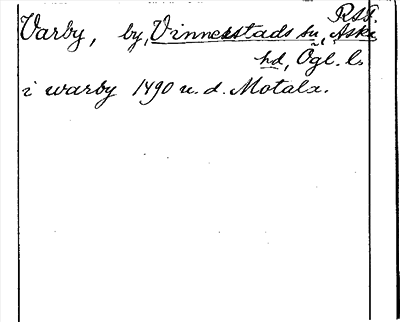 RSP.
Varby, by, Vinnerstads sn, Aska
hd, Ögl. l.
i warby 1490 u. d. Motala.